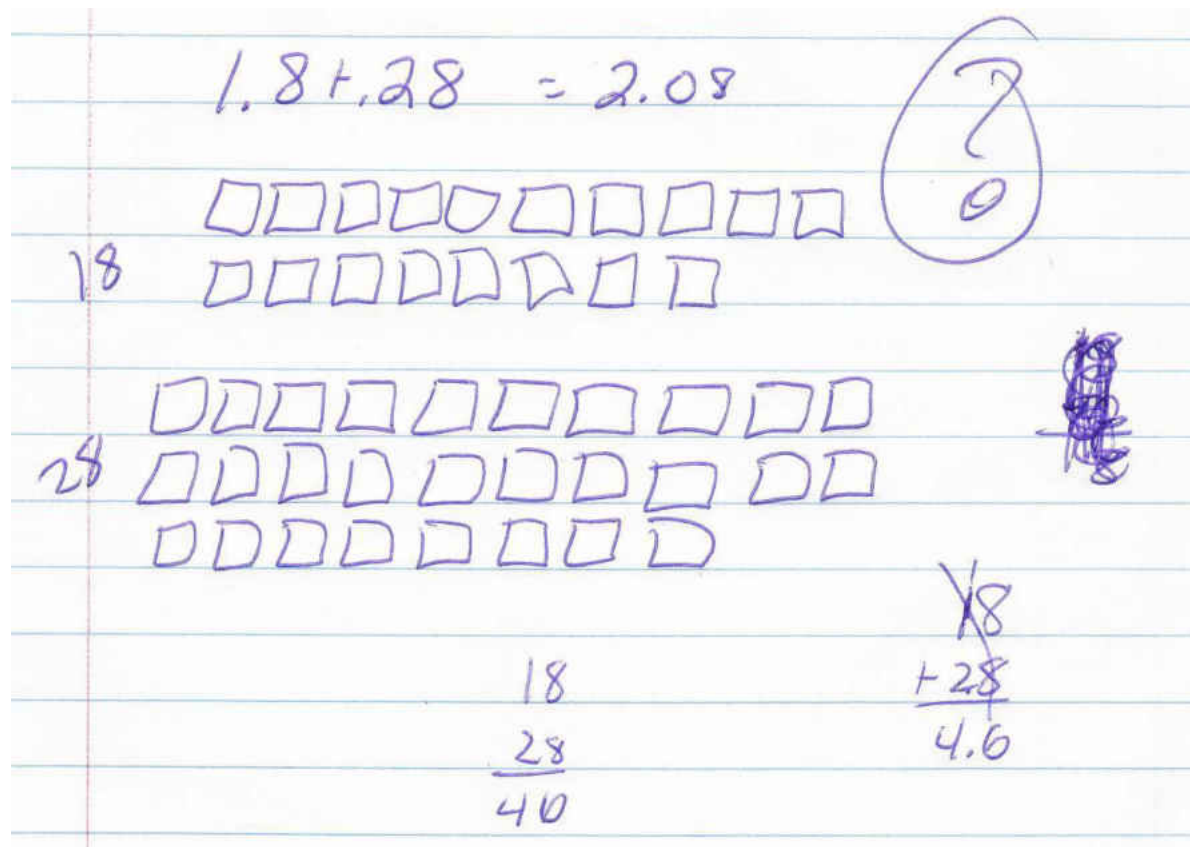 1.8+.28 = 2.08
?
18
28
18
28
46
18
+28
4.6